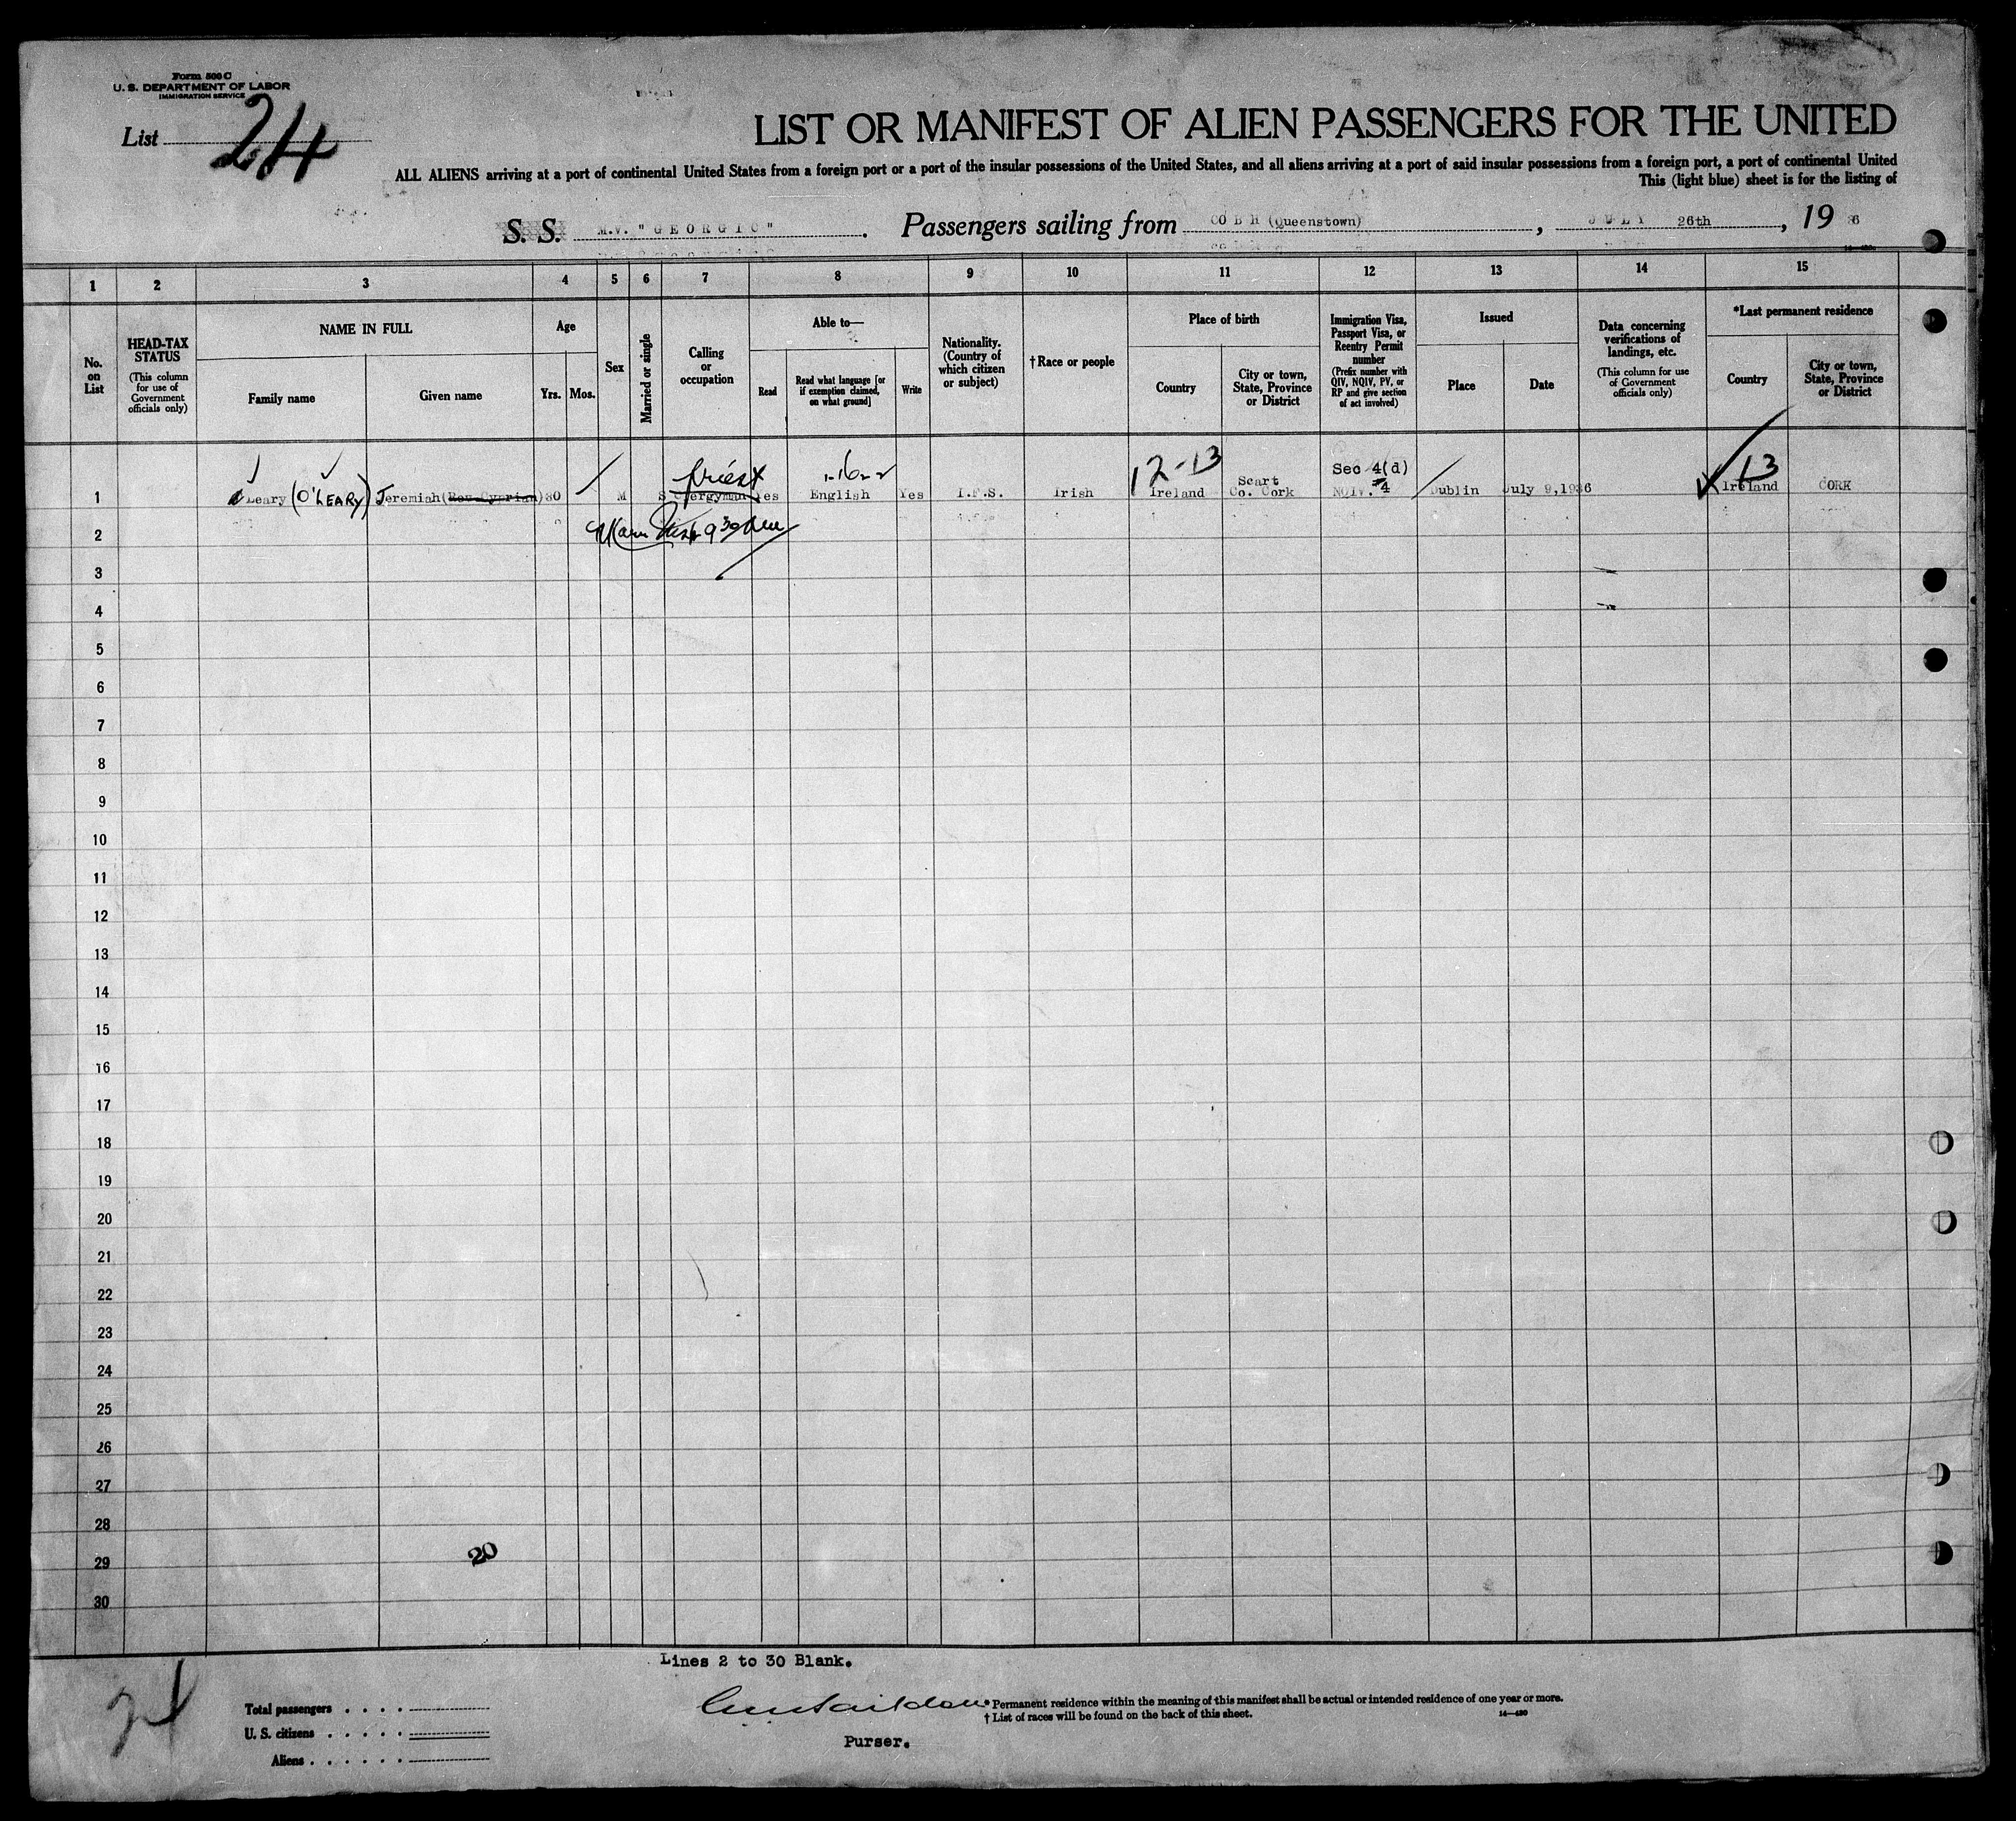 Form 500 C
U. S. DEPARTMENT OF LABOR
IMMIGRATION SERVICE
List 24
LIST OR MANIFEST OF ALIEN PASSENGERS FOR THE UNITED
ALL ALIENS arriving at a port of continental United States from a foreign port or a port of the insular possessions of the United States, and all aliens arriving at a port of said insular possessions from a foreign port, a port of continental United
This (light blue) sheet is for the listing of
S. S. M.V. "GEORGIC". Passengers sailing from COBH (Queenstown), JULY 26th, 1936
1 2 3 4 5 6 7 8 9 10 11 12 13 14 15
No. on List
HEAD-TAX STATUS
(This column for use of Government officials only)
NAME IN FULL
Family name
Given name
Age
Yrs.
Mos.
Sex
Married or single
Calling or occupation
Able to—
Read
Read what language [or if exemption claimed, on what ground]
Write
Nationality. (Country of which citizen or subject)
†Race or people
Place of birth
Country
City or town, State, Province or District
Immigration Visa, Passport Visa, or Reentry Permit number
(Prefix number with QIV, NQIV, PV, or RP and give section of act involved)
Issued
Place
Date
Data concerning verifications of landings, etc.
(This column for use of Government officials only)
*Last permanent residence
Country
City or town, State, Province or District
priest 12-13 Sec 4(d) 13
1 Leary (O'LEARY) Jeremiah (Rev Cyprian) 30 M S Clergyman Yes English Yes I.F.S. Irish Ireland Scart Co. Cork NQIV. 4 Dublin July 9, 1936 Ireland CORK
2
3
4
5
6
7
8
9
10
11
12
13
14
15
16
17
18
19
20
21
22
23
24
25
26
27
28
29
20
30
Lines 2 to 30 Blank.
24
Total passengers
U. S. citizens
Aliens
*Permanent residence within the meaning of this manifest shall be actual or intended residence of one year or more.
†List of races will be found on the back of this sheet.
14—430
Purser.